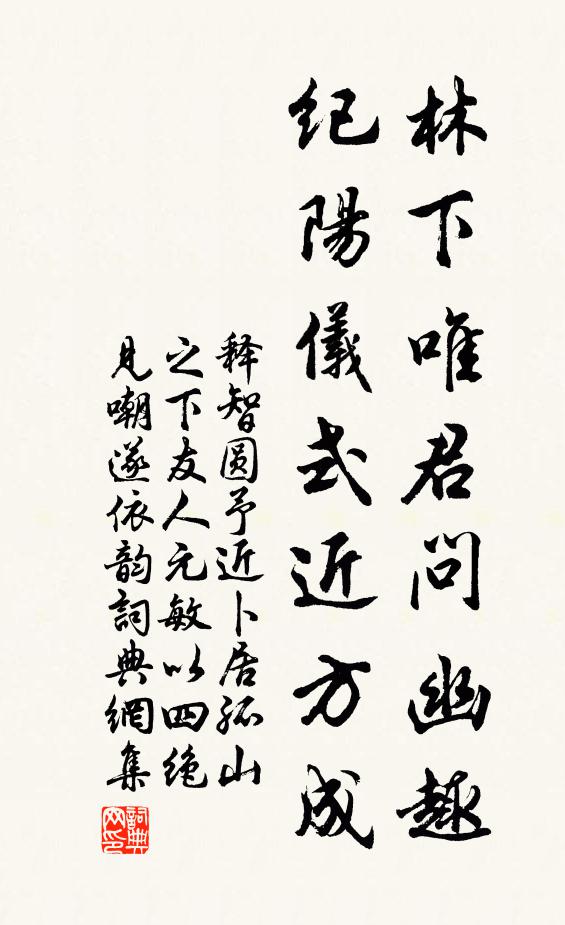 林下唯君問幽趣
紀陽儀式近方成
释智圆予近卜居孤山
之下友人元敏以四绝
見嘲遂依韵詞典網集
詞典
网印